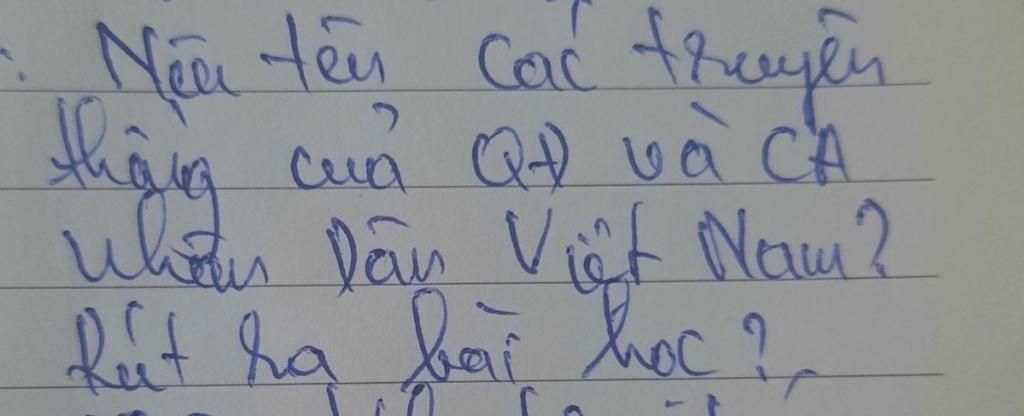 : Nêu tên các truyền
thống của QĐ và CA
nhân Dân Việt Nam?
Rút ra bài học?